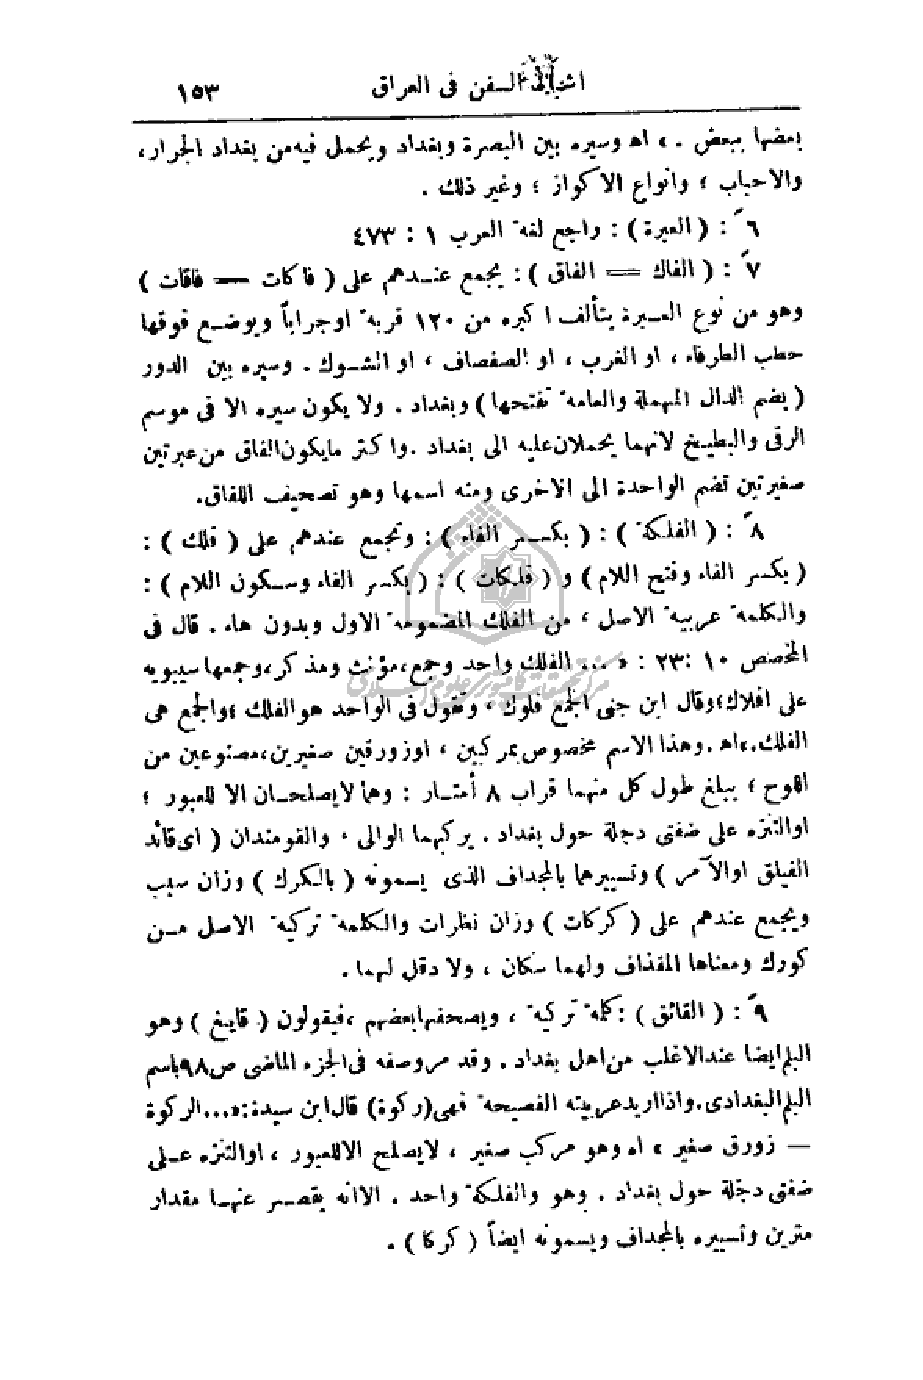 السفن فى العراق ١٥٣
بعضها ببعض . » اه وسيره بين البصرة وبغداد ويحمل فيه من بغداد الجرار ،
والاحباب ؛ وانواع الاكواز ؛ وغير ذلك .
٦ً : ( العبرة ) : راجع لغة العرب ١ : ٤٧٣
٧ً : ( الفاك = الفاق ) : يجمع عندهم على ( فاكات — فاقات )
وهو من نوع العبرة يتألف اكبره من ١٢٠ قربة اوجراباً ويوضع فوقها
حطب الطرفاء ، او الغرب ، او الصفصاف ، او الشوك . وسيره بين الدور
( بضم الدال المهملة والعامة تفتحها ) وبغداد . ولا يكون سيره الا فى موسم
الرقى والبطيخ لانهما يحملان عليه الى بغداد . واكثر مايكون الفاق من عبرتين
صغيرتين تضم الواحدة الى الاخرى ومنه اسمها وهو تصحيف اللفاق .
٨ً : ( الفلكة ) : ( بكسر الفاء ) : وتجمع عندهم على ( فلك ) :
( بكسر الفاء وفتح اللام ) و ( فلكات ) : ( بكسر الفاء وسكون اللام ) :
والكلمة عربية الاصل ، من الفلك المضمومة الاول وبدون هاء . قال فى
المخصص ١٠ : ٢٣ : « ... الفلك واحد وجمع ، مؤنث ومذكر ، وجمعها سيبويه
على افلاك ؛ وقال ابن جنى الجمع فلوك ، وتقول فى الواحد هو الفلك ؛ والجمع هى
الفلك . » اه . وهذا الاسم مخصوص بمركبين ، اوزورقين صغيرين ، مصنوعين من
الواح ؛ يبلغ طول كل منهما قراب ٨ أمتار : وهما لايصلحان الا للعبور ؛
اوالتنزه على ضفتى دجلة حول بغداد . يركبهما الوالى ، والقومندان ( اى قائد
الفيلق اوالآمر ) وتسييرهما بالمجداف الذى يسمونه ( بالكرك ) وزان سبب
ويجمع عندهم على ( كركات ) وزان نظرات والكلمة تركية الاصل من
كورك ومعناها المقذاف ولهما سكان ، ولا دقل لهما .
٩ً : ( القائق ) : كلمة تركية ، ويصحفها بعضهم ، فيقولون ( قاييغ ) وهو
البلم ايضا عند الاغلب من اهل بغداد . وقد مر وصفه فى الجزء الماضى ص ٩٨ باسم
البلم البغدادى . واذا اريد عربيته الفصيحة فهى ( ركوة ) قال ابن سيدة : « ... الركوة
— زورق صغير » اه وهو مركب صغير ، لايصلح الا للعبور ، اوالتنزه على
ضفتى دجلة حول بغداد . وهو والفلكة واحد . الا انه يقصر عنها مقدار
مترين وتسييره بالمجداف ويسمونه ايضاً ( كركا ) .